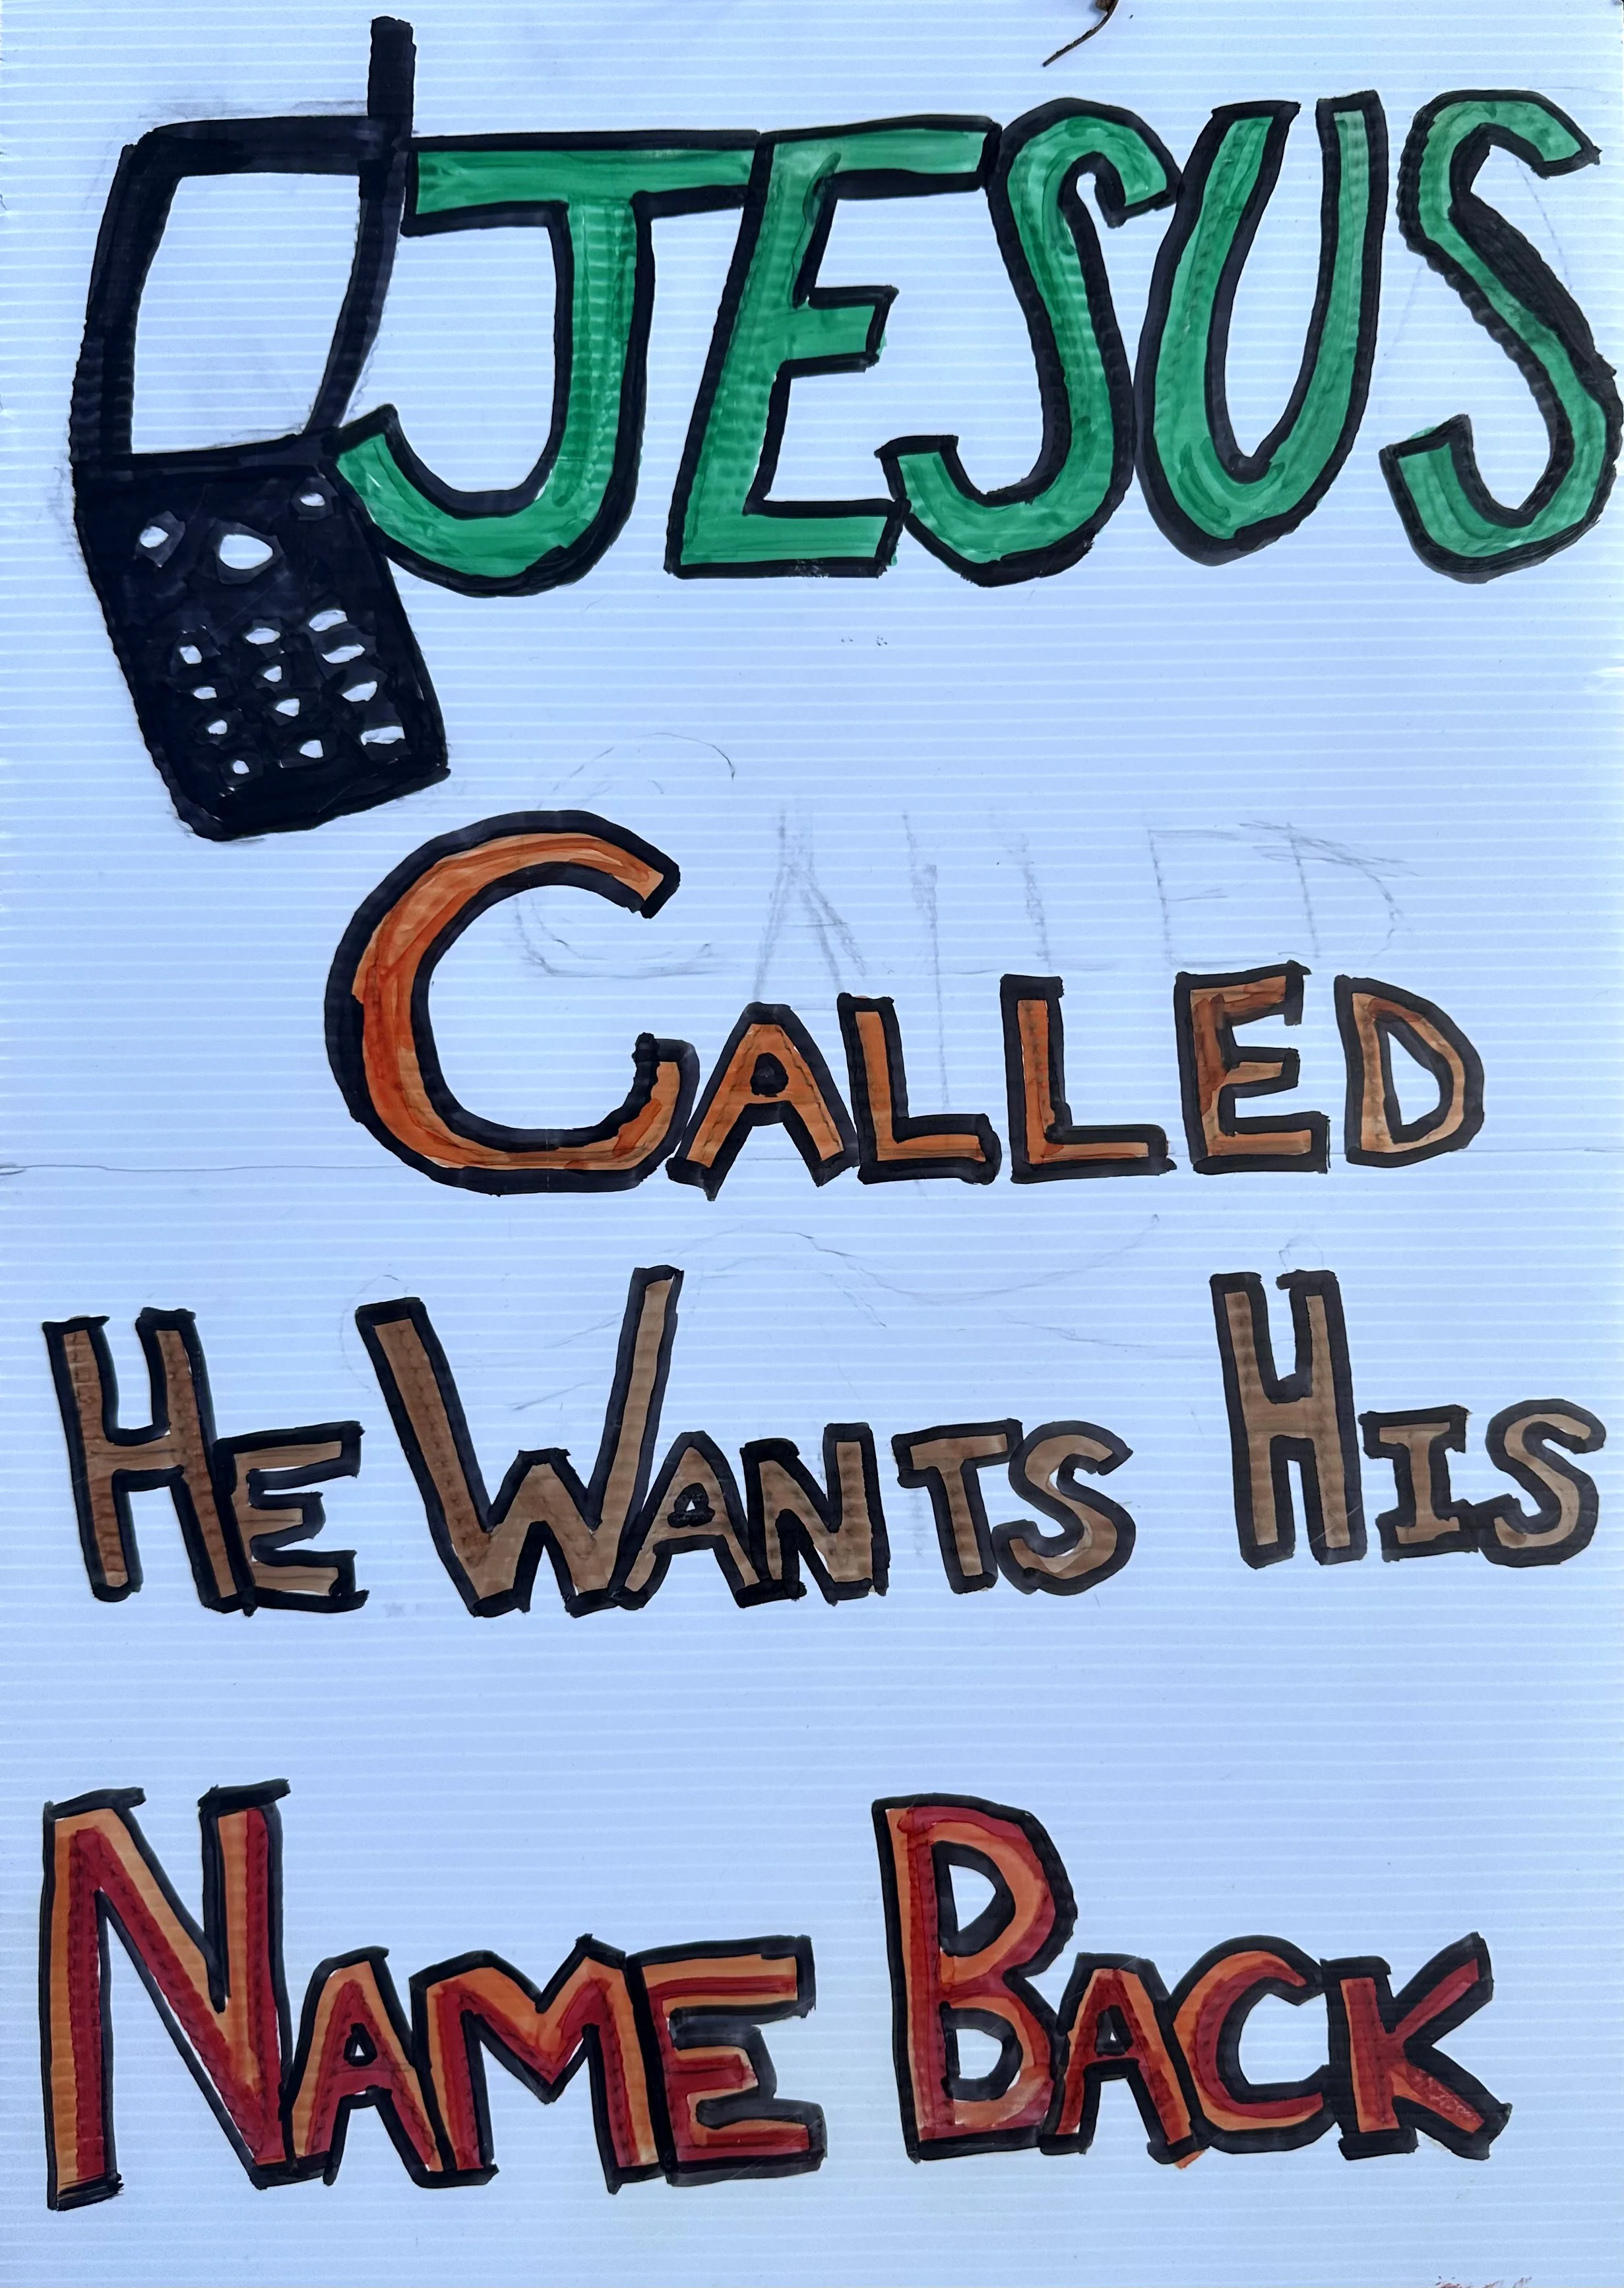 JESUS
CALLED
HE WANTS HIS
NAME BACK